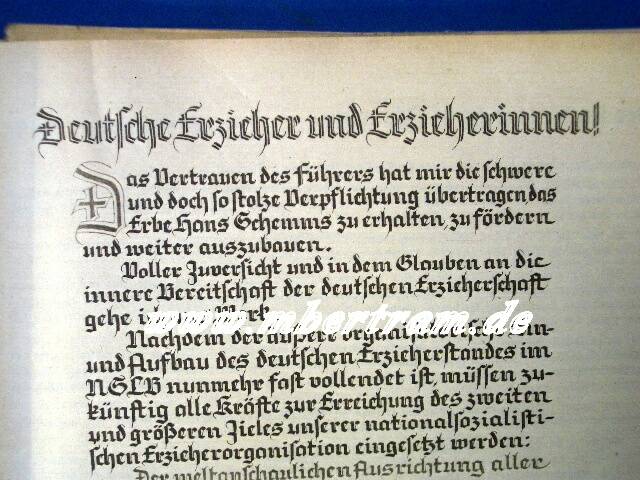 Deutsche Erzieher und Erzieherinnen!
Das Vertrauen des Führers hat mir die schwere
und doch so stolze Verpflichtung übertragen das
Erbe Hans Schemms zu erhalten, zu fördern
und weiter auszubauen.
Voller Zuversicht und in dem Glauben an die
innere Bereitschaft der deutschen Erzieherschaft
gehe
www.mbertram.de
Nachdem der äußere
und Aufbau des deutschen Erzieherstandes im
NSLB nunmehr fast vollendet ist, müssen zu-
künftig alle Kräfte zur Erreichung des zweiten
und größeren Zieles unserer nationalsozialisti-
schen Erzieherorganisation eingesetzt werden:
Der weltanschaulichen Ausrichtung aller